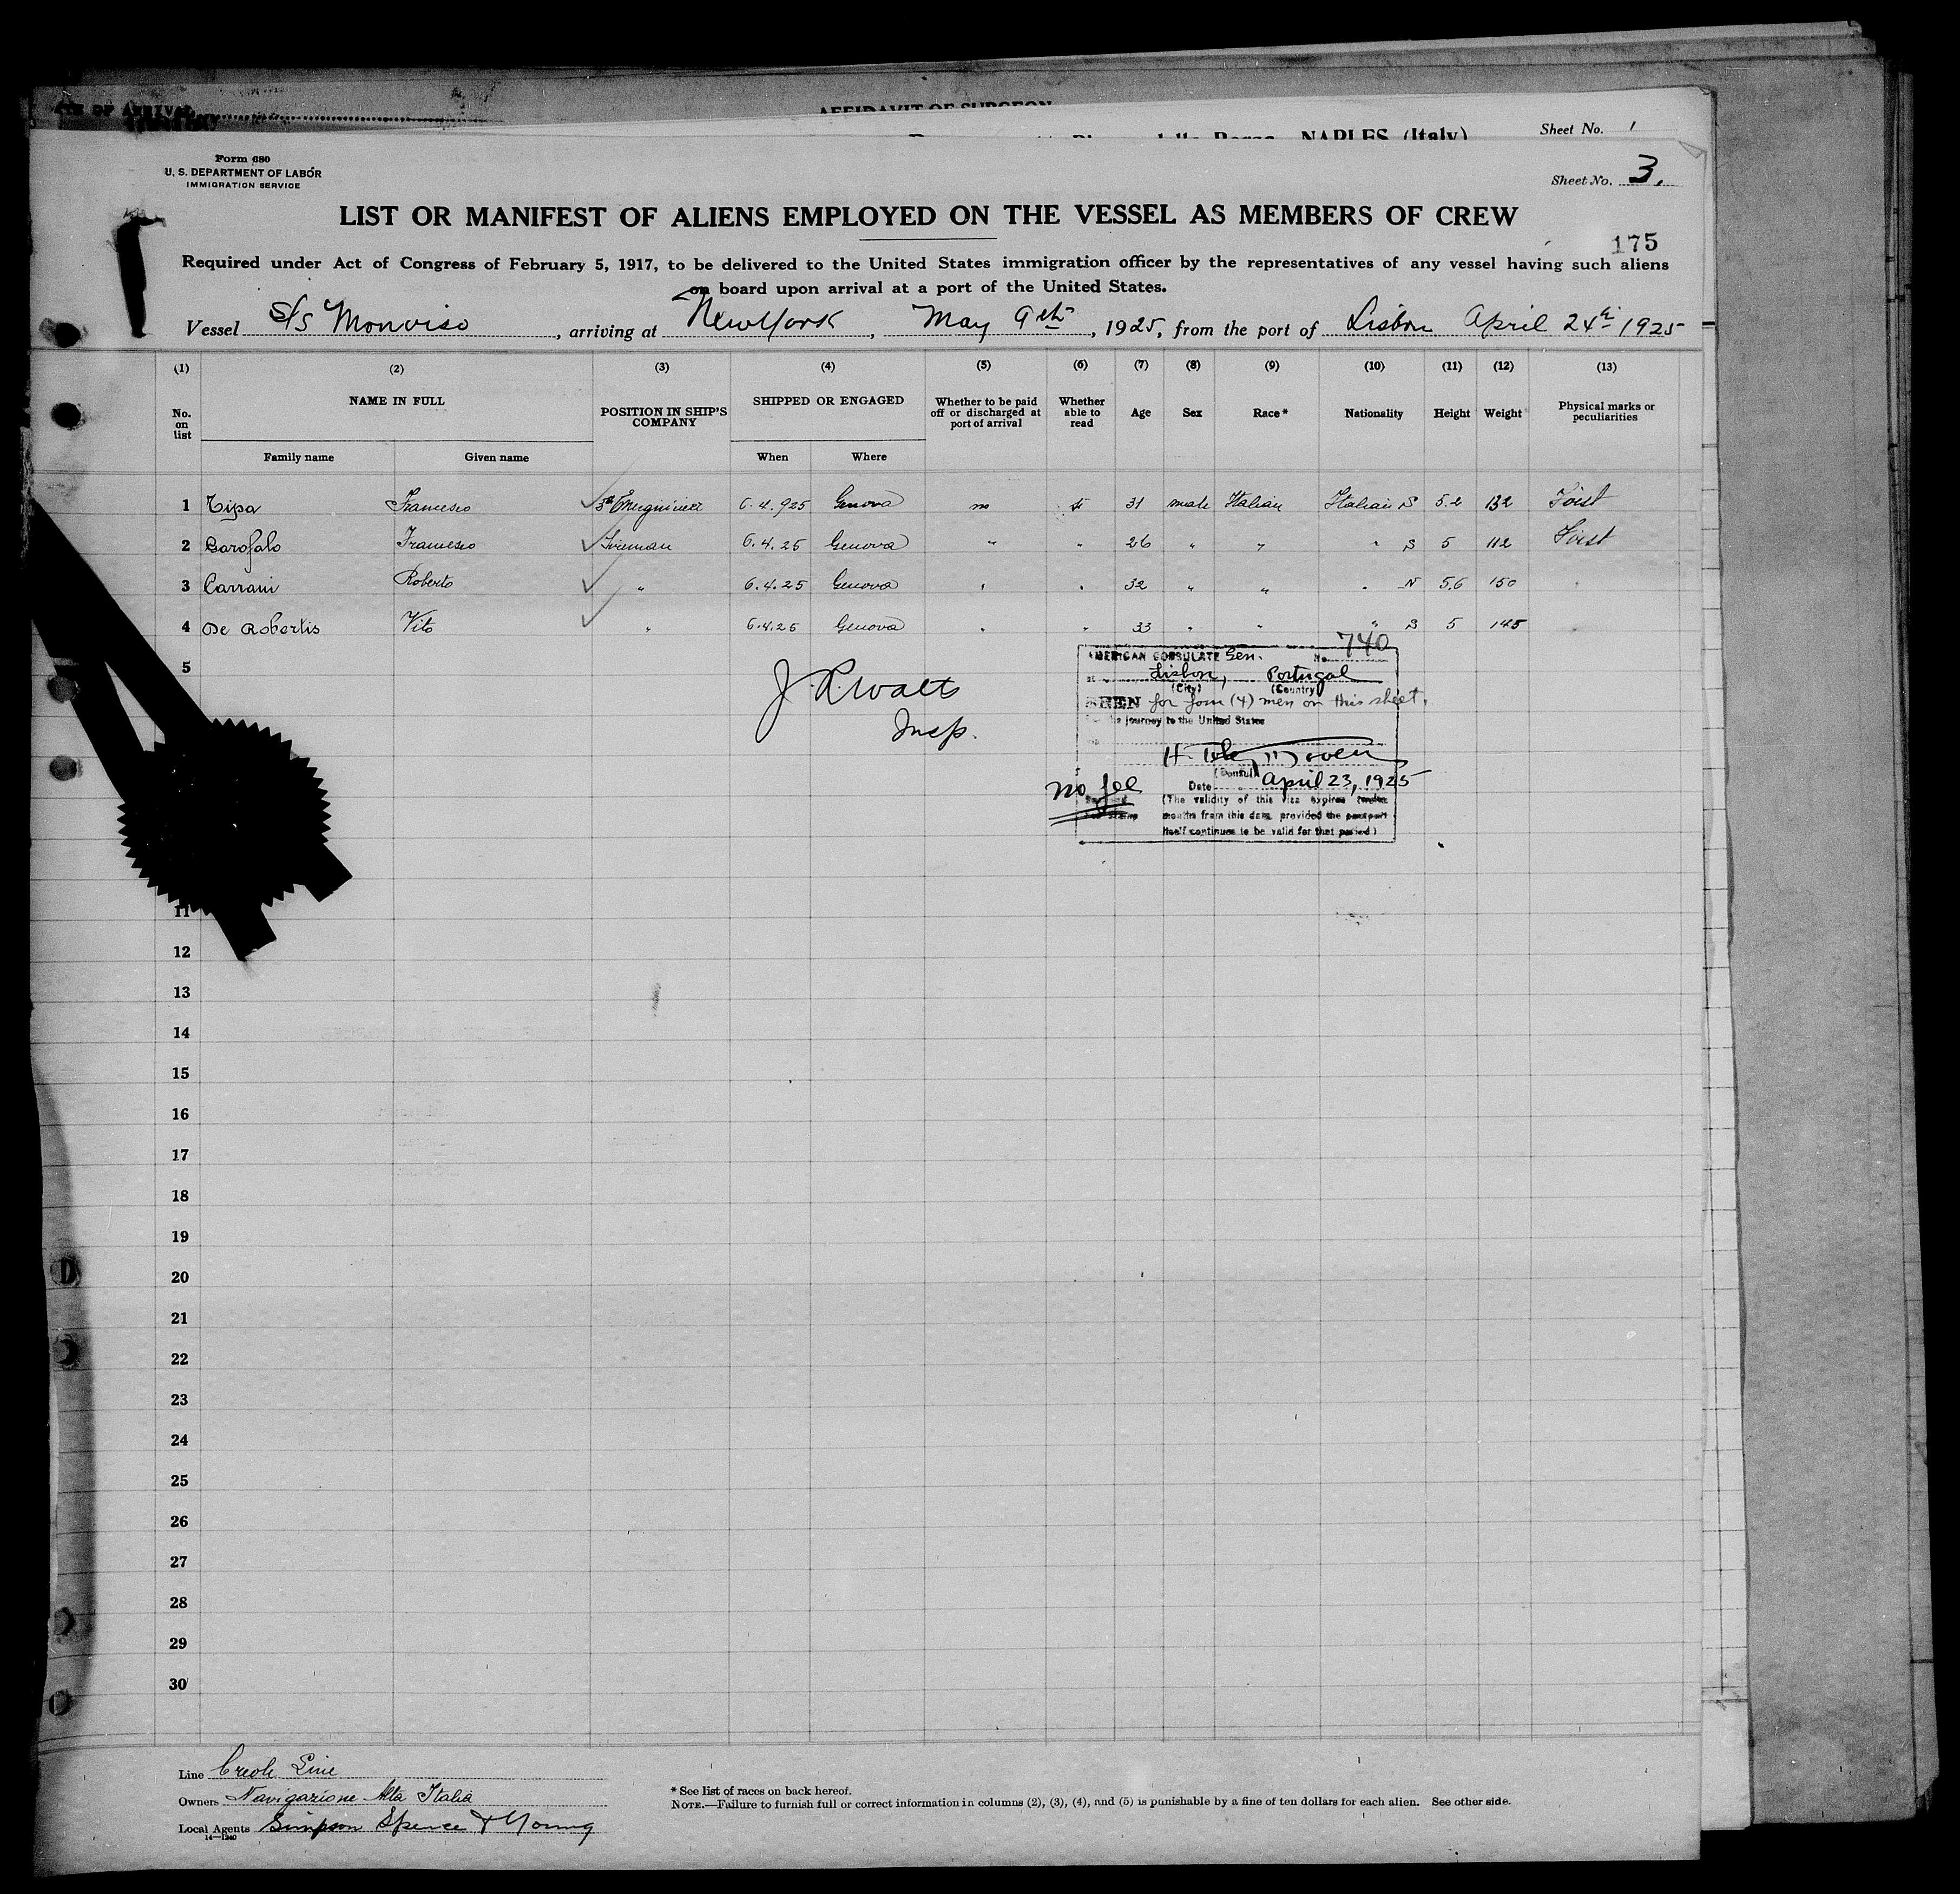 AFFIDAVIT OF SURGEON
NAPLES (Italy)
Sheet No. 1
Form 680
U. S. DEPARTMENT OF LABOR
IMMIGRATION SERVICE
Sheet No. 3.
LIST OR MANIFEST OF ALIENS EMPLOYED ON THE VESSEL AS MEMBERS OF CREW
175
Required under Act of Congress of February 5, 1917, to be delivered to the United States immigration officer by the representatives of any vessel having such aliens
on board upon arrival at a port of the United States.
Vessel S/S Monviso, arriving at New York, May 9th, 1925, from the port of Lisbon April 24th 1925
(1) (2) (3) (4) (5) (6) (7) (8) (9) (10) (11) (12) (13)
No. on list
NAME IN FULL
Family name Given name
POSITION IN SHIP'S COMPANY
SHIPPED OR ENGAGED
When Where
Whether to be paid off or discharged at port of arrival
Whether able to read
Age Sex Race* Nationality Height Weight
Physical marks or peculiarities
1 Tipa Francesco 6.4.925 Genova no 31 male Italian Italian S 5.2 132
2 Garofalo Francesco Fireman 6.4.25 Genova " " 26 " " " S 5 112
3 Carrani Roberto " 6.4.25 Genova " " 32 " " " N 5.6 150
4 De Robertis Vito " 6.4.25 Genova " " 33 " " " S 5 145
5
11
12
13
14
15
16
17
18
19
20
21
22
23
24
25
26
27
28
29
30
J. R. Watts
Insp.
740
AMERICAN CONSULATE Gen. No.
Lisbon, Portugal
(City) (Country)
SEEN for four (4) men on this sheet.
journey to the United States
(Consul)
no fee
Date April 23, 1925
(The validity of this visa expires twelve
months from this date, provided the passport
itself continues to be valid for that period)
Line Creole Line
Owners Navigazione Alta Italia
Local Agents Simpson Spence & Young
14—1240
* See list of races on back hereof.
NOTE.—Failure to furnish full or correct information in columns (2), (3), (4), and (5) is punishable by a fine of ten dollars for each alien. See other side.